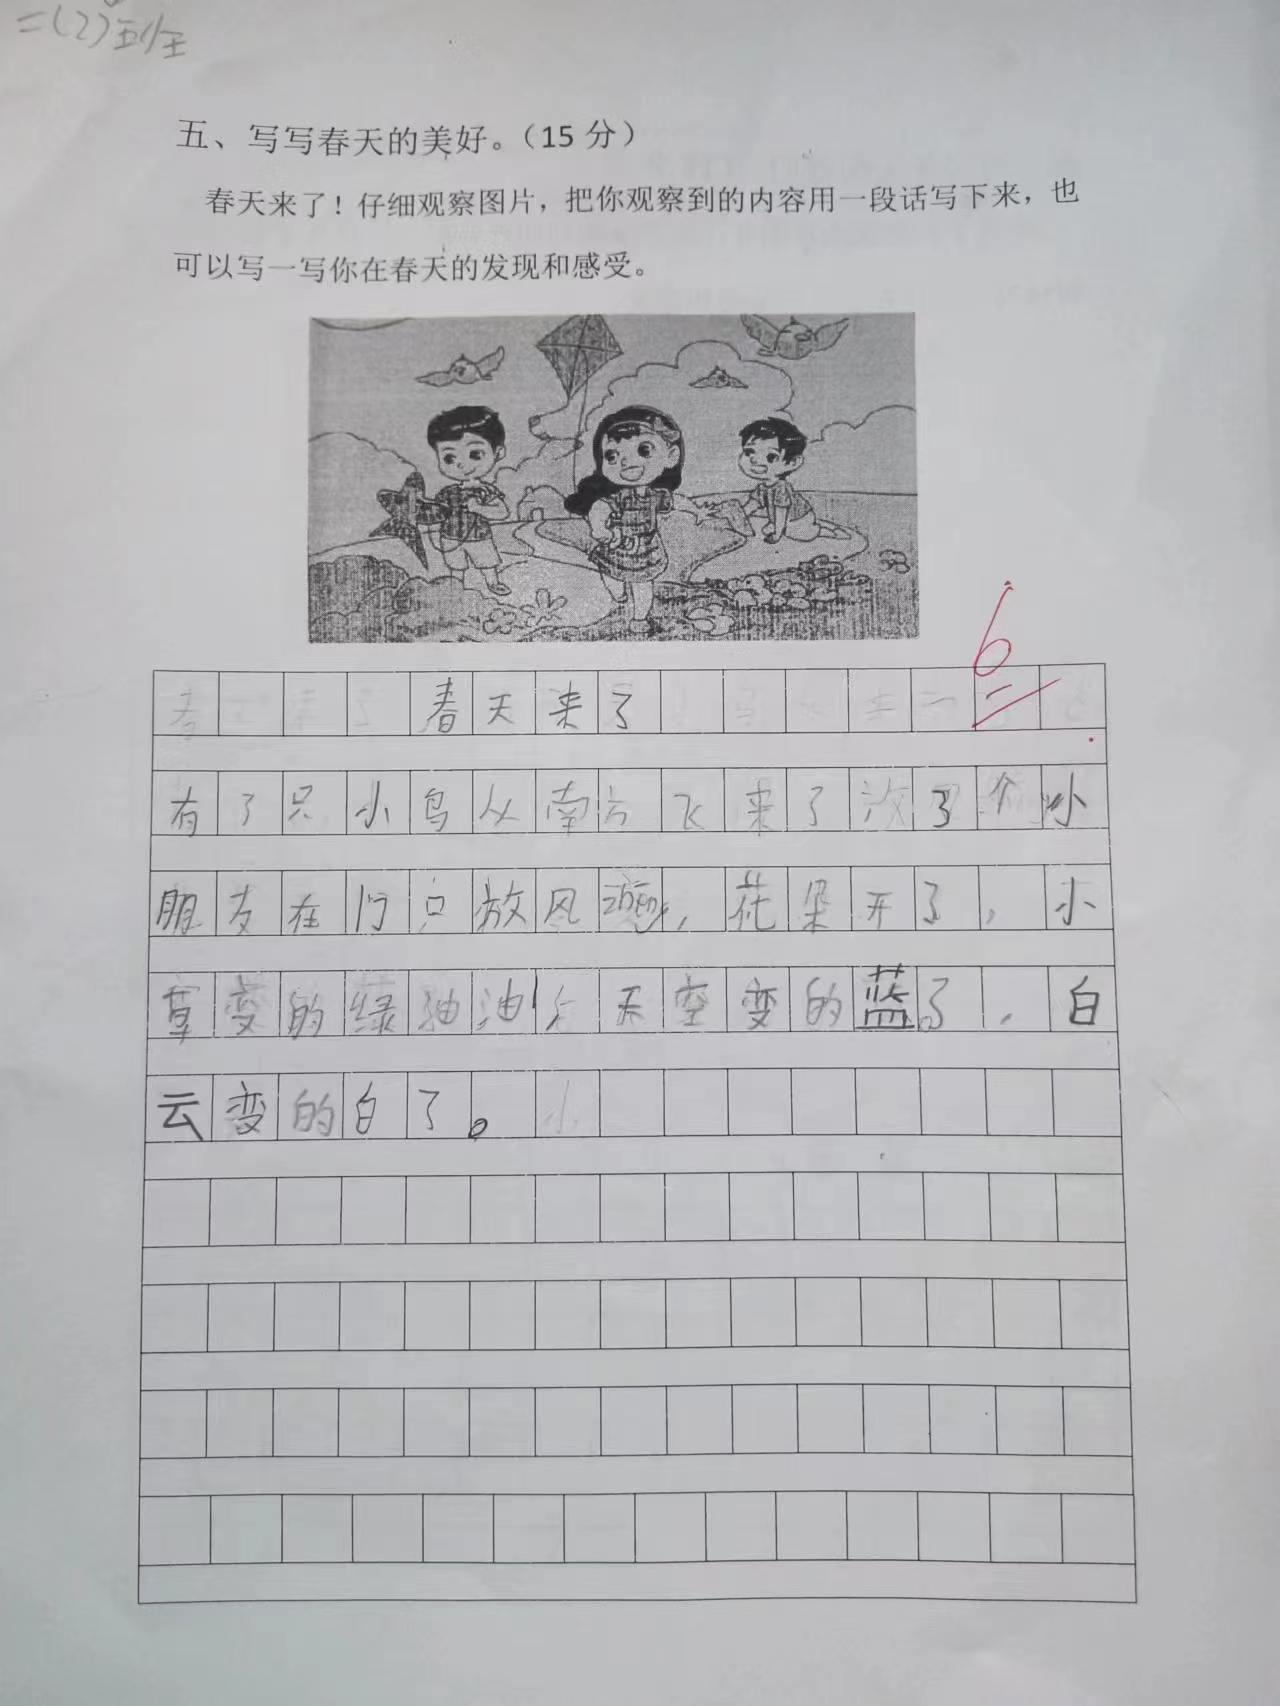 二(2)
五、写写春天的美好。（15 分）
春天来了！仔细观察图片，把你观察到的内容用一段话写下来，也
可以写一写你在春天的发现和感受。
6
春天来了
有了只小鸟从南方飞来了 了个小
朋友在 放风 ，花朵开了，小
草变的绿油油，天空变的蓝了，白
云变的白了。小